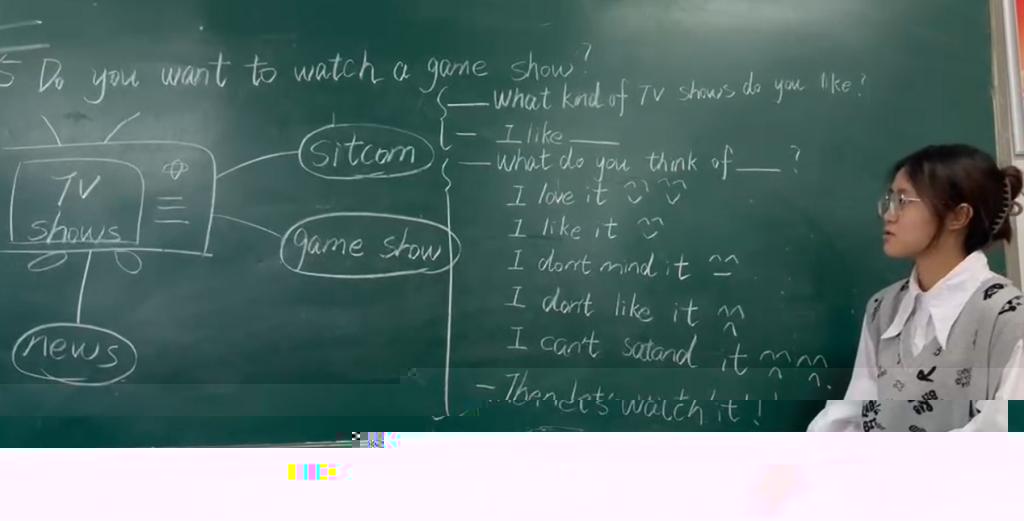 5 Do you want to watch a game show?
— What kind of TV shows do you like?
— I like ____
— What do you think of ____?
I love it
I like it
I don't mind it
I don't like it
I can't satand it
— Then let's watch it!
TV
shows
sitcom
game show
news